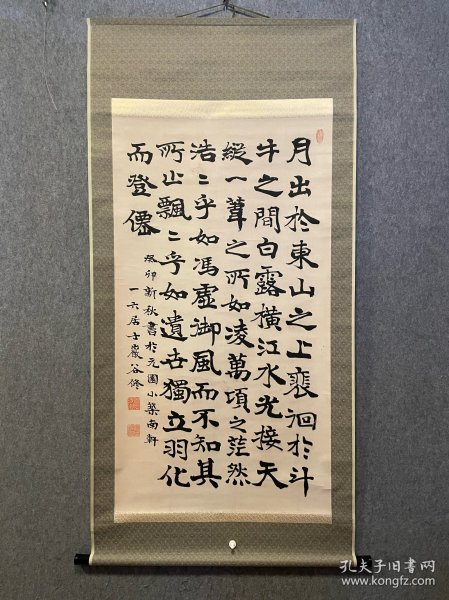 月出於東山之上裵洄於斗
牛之間白露橫江水光接天
縱一葦之所如凌萬頃之茫然
浩〻乎如馮虛御風而不知其
所止飄〻乎如遺世獨立羽化
而登僊
癸卯新秋書於元園小築南軒
一六居士巖谷修
孔夫子旧书网
www.kongfz.com